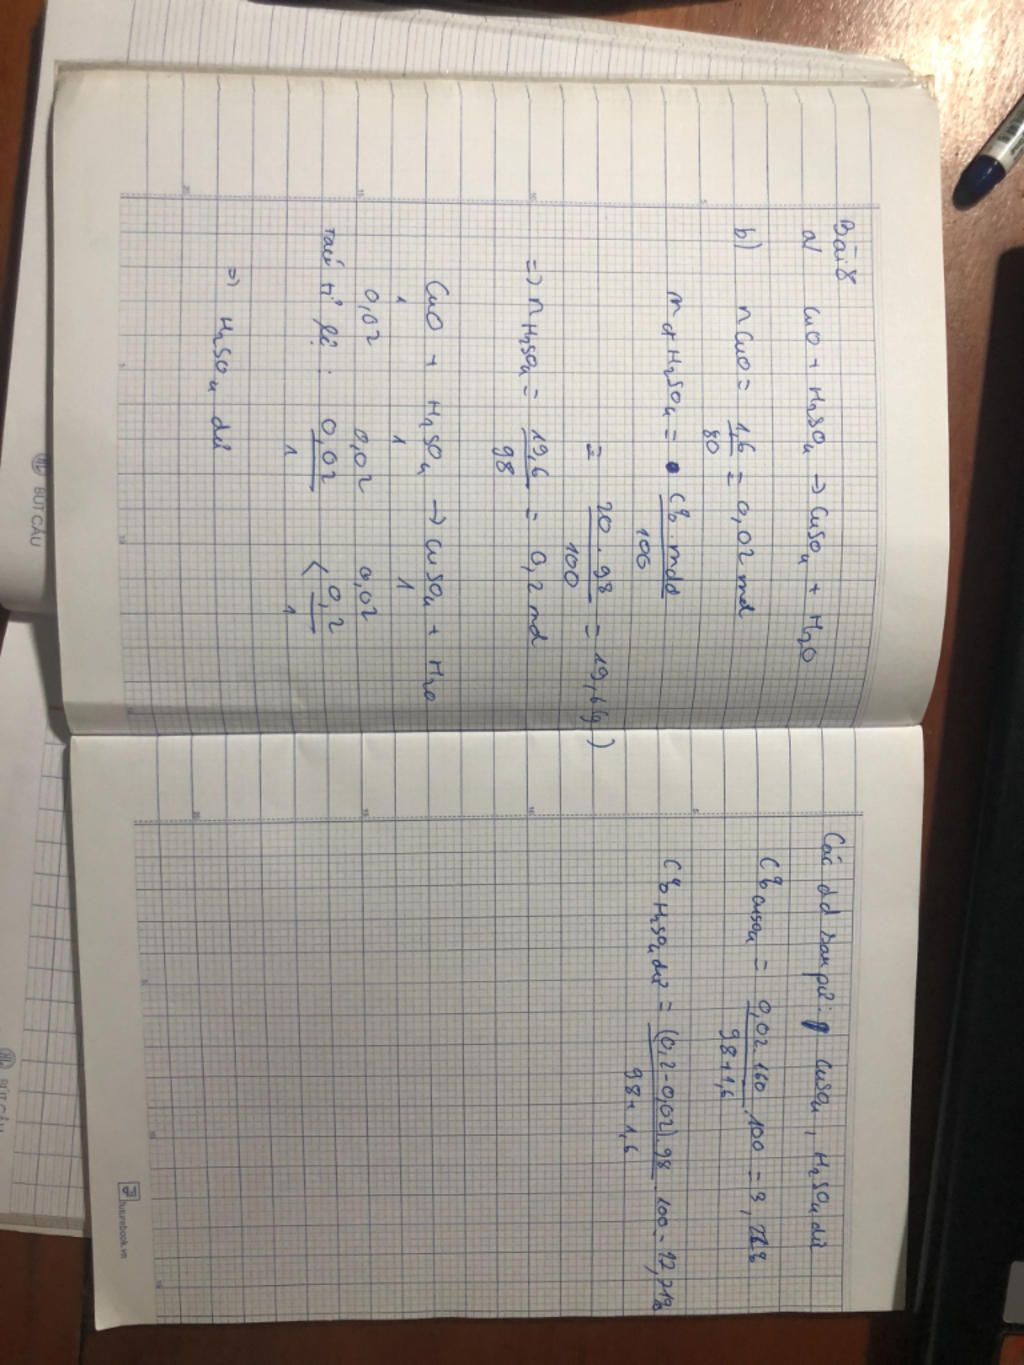 Bài 8
a/ CuO + H2SO4 → CuSO4 + H2O
b) nCuO = 1,6/80 = 0,02 mol
m ct H2SO4 = C%.mdd/100
= 20.98/100 = 19,6(g)
=> nH2SO4 = 19,6/98 = 0,2 mol
CuO + H2SO4 → CuSO4 + H2O
1 1 1
0,02 0,02 0,02
tỉ lệ: 0,02/1 < 0,2/1
=> H2SO4 dư
Các dd sau pứ: CuSO4, H2SO4 dư
C% CuSO4 = 0,02.160/98+1,6 .100 = 3,21%
C% H2SO4 dư = (0,2-0,02).98/98+1,6 .100 = 17,71%
BÚT CÂU
futurebook.vn